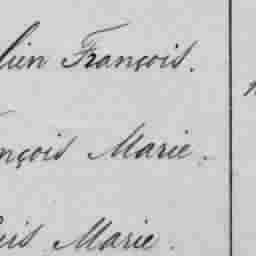 lien François.
nçois Marie.
uis Marie.